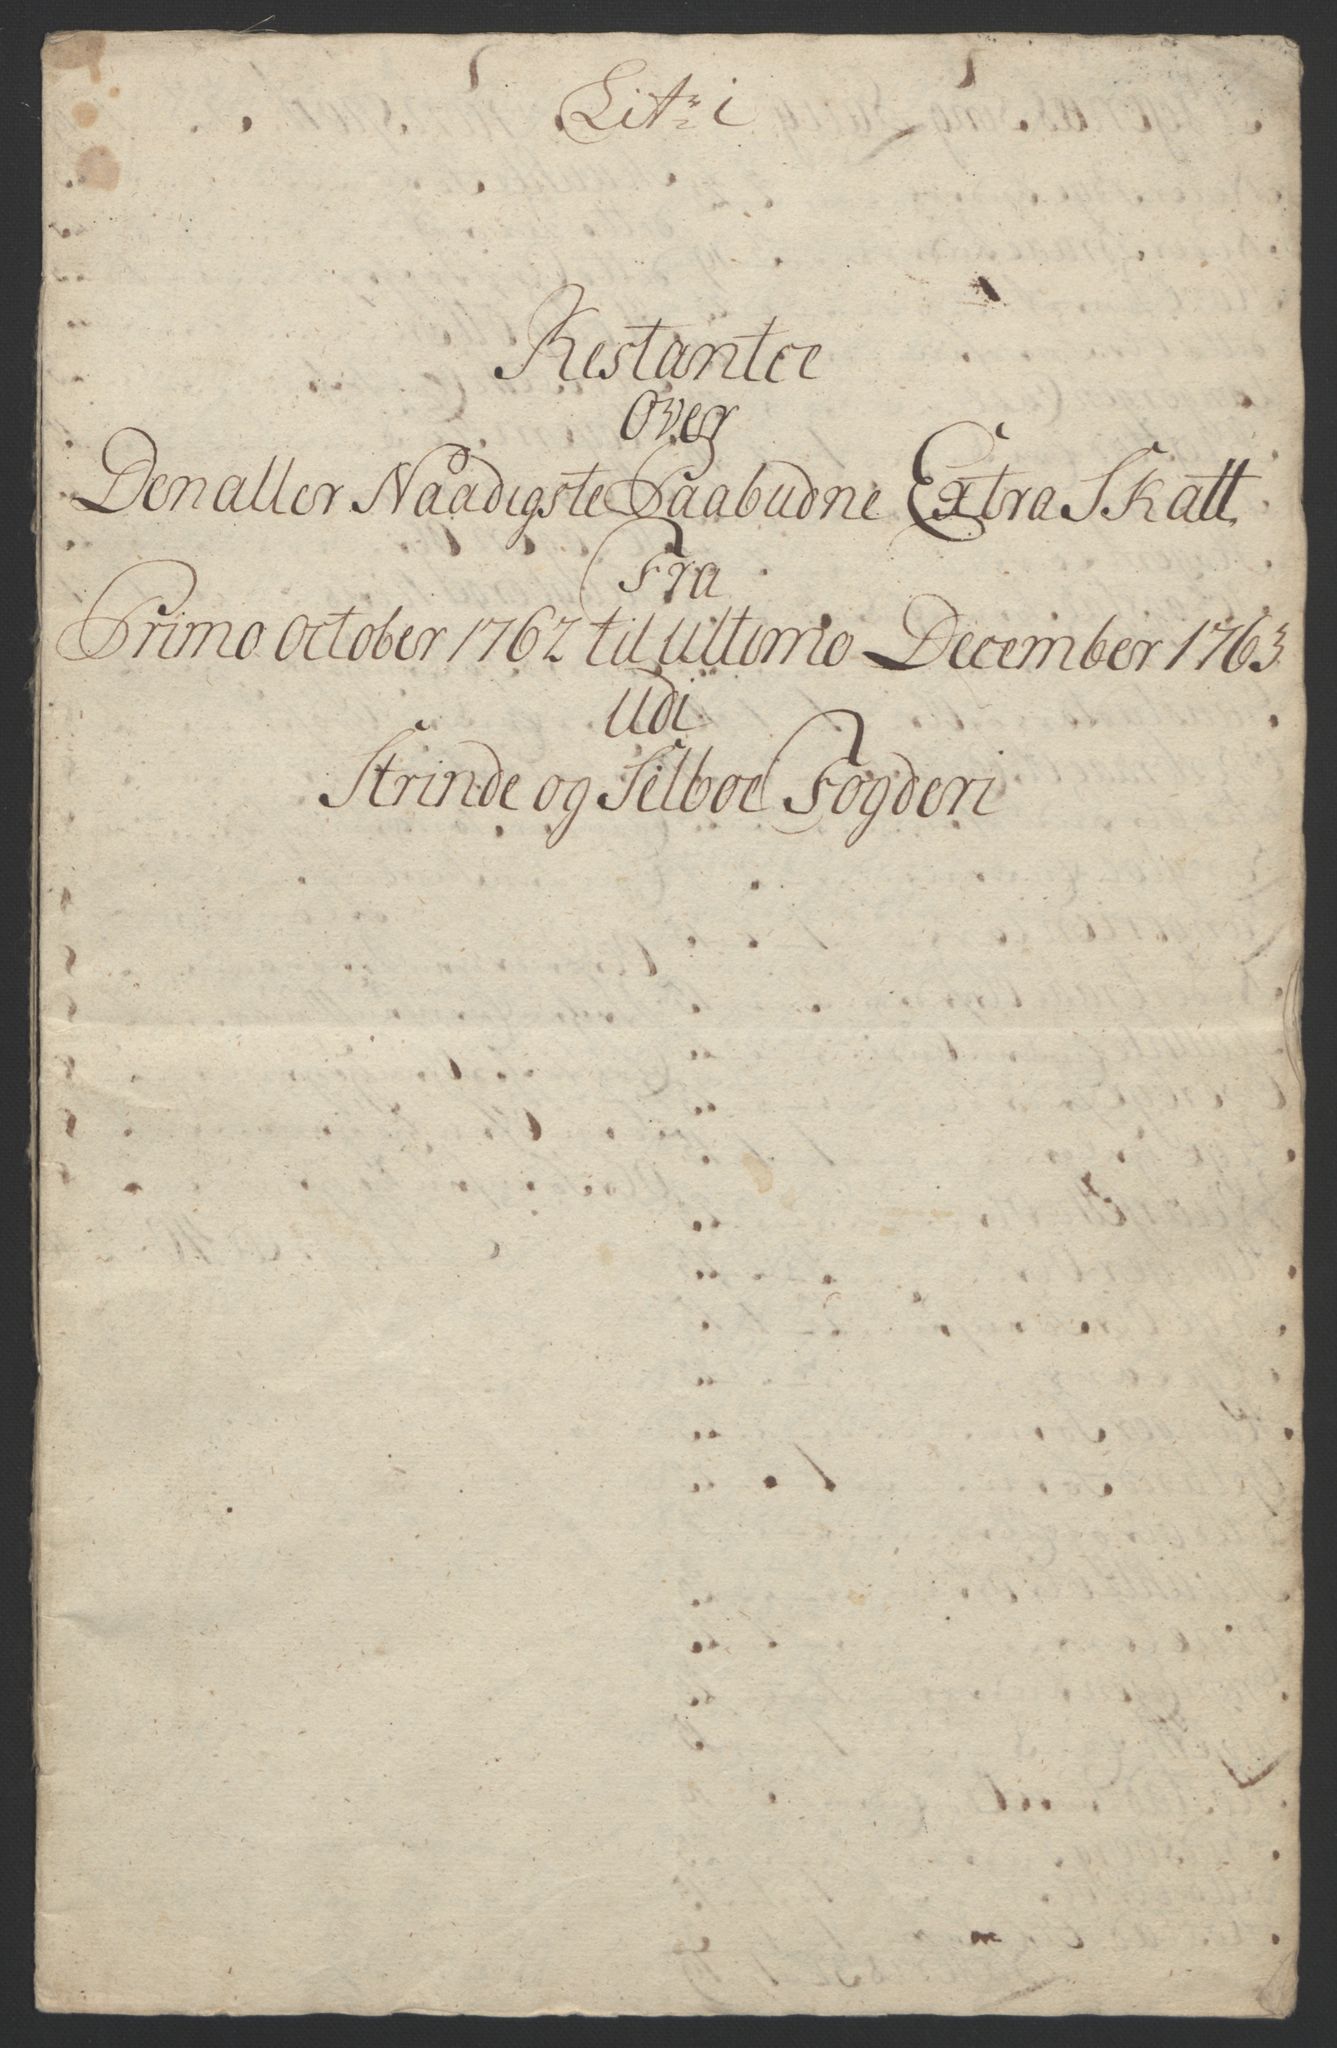 Litr: i
Restantce
Over
Den aller Naadigste Paabudne Extra Skatt
Fra
Primo October 1762 til ultimo December 1763
Udi
Strinde og Selboe Fogderi